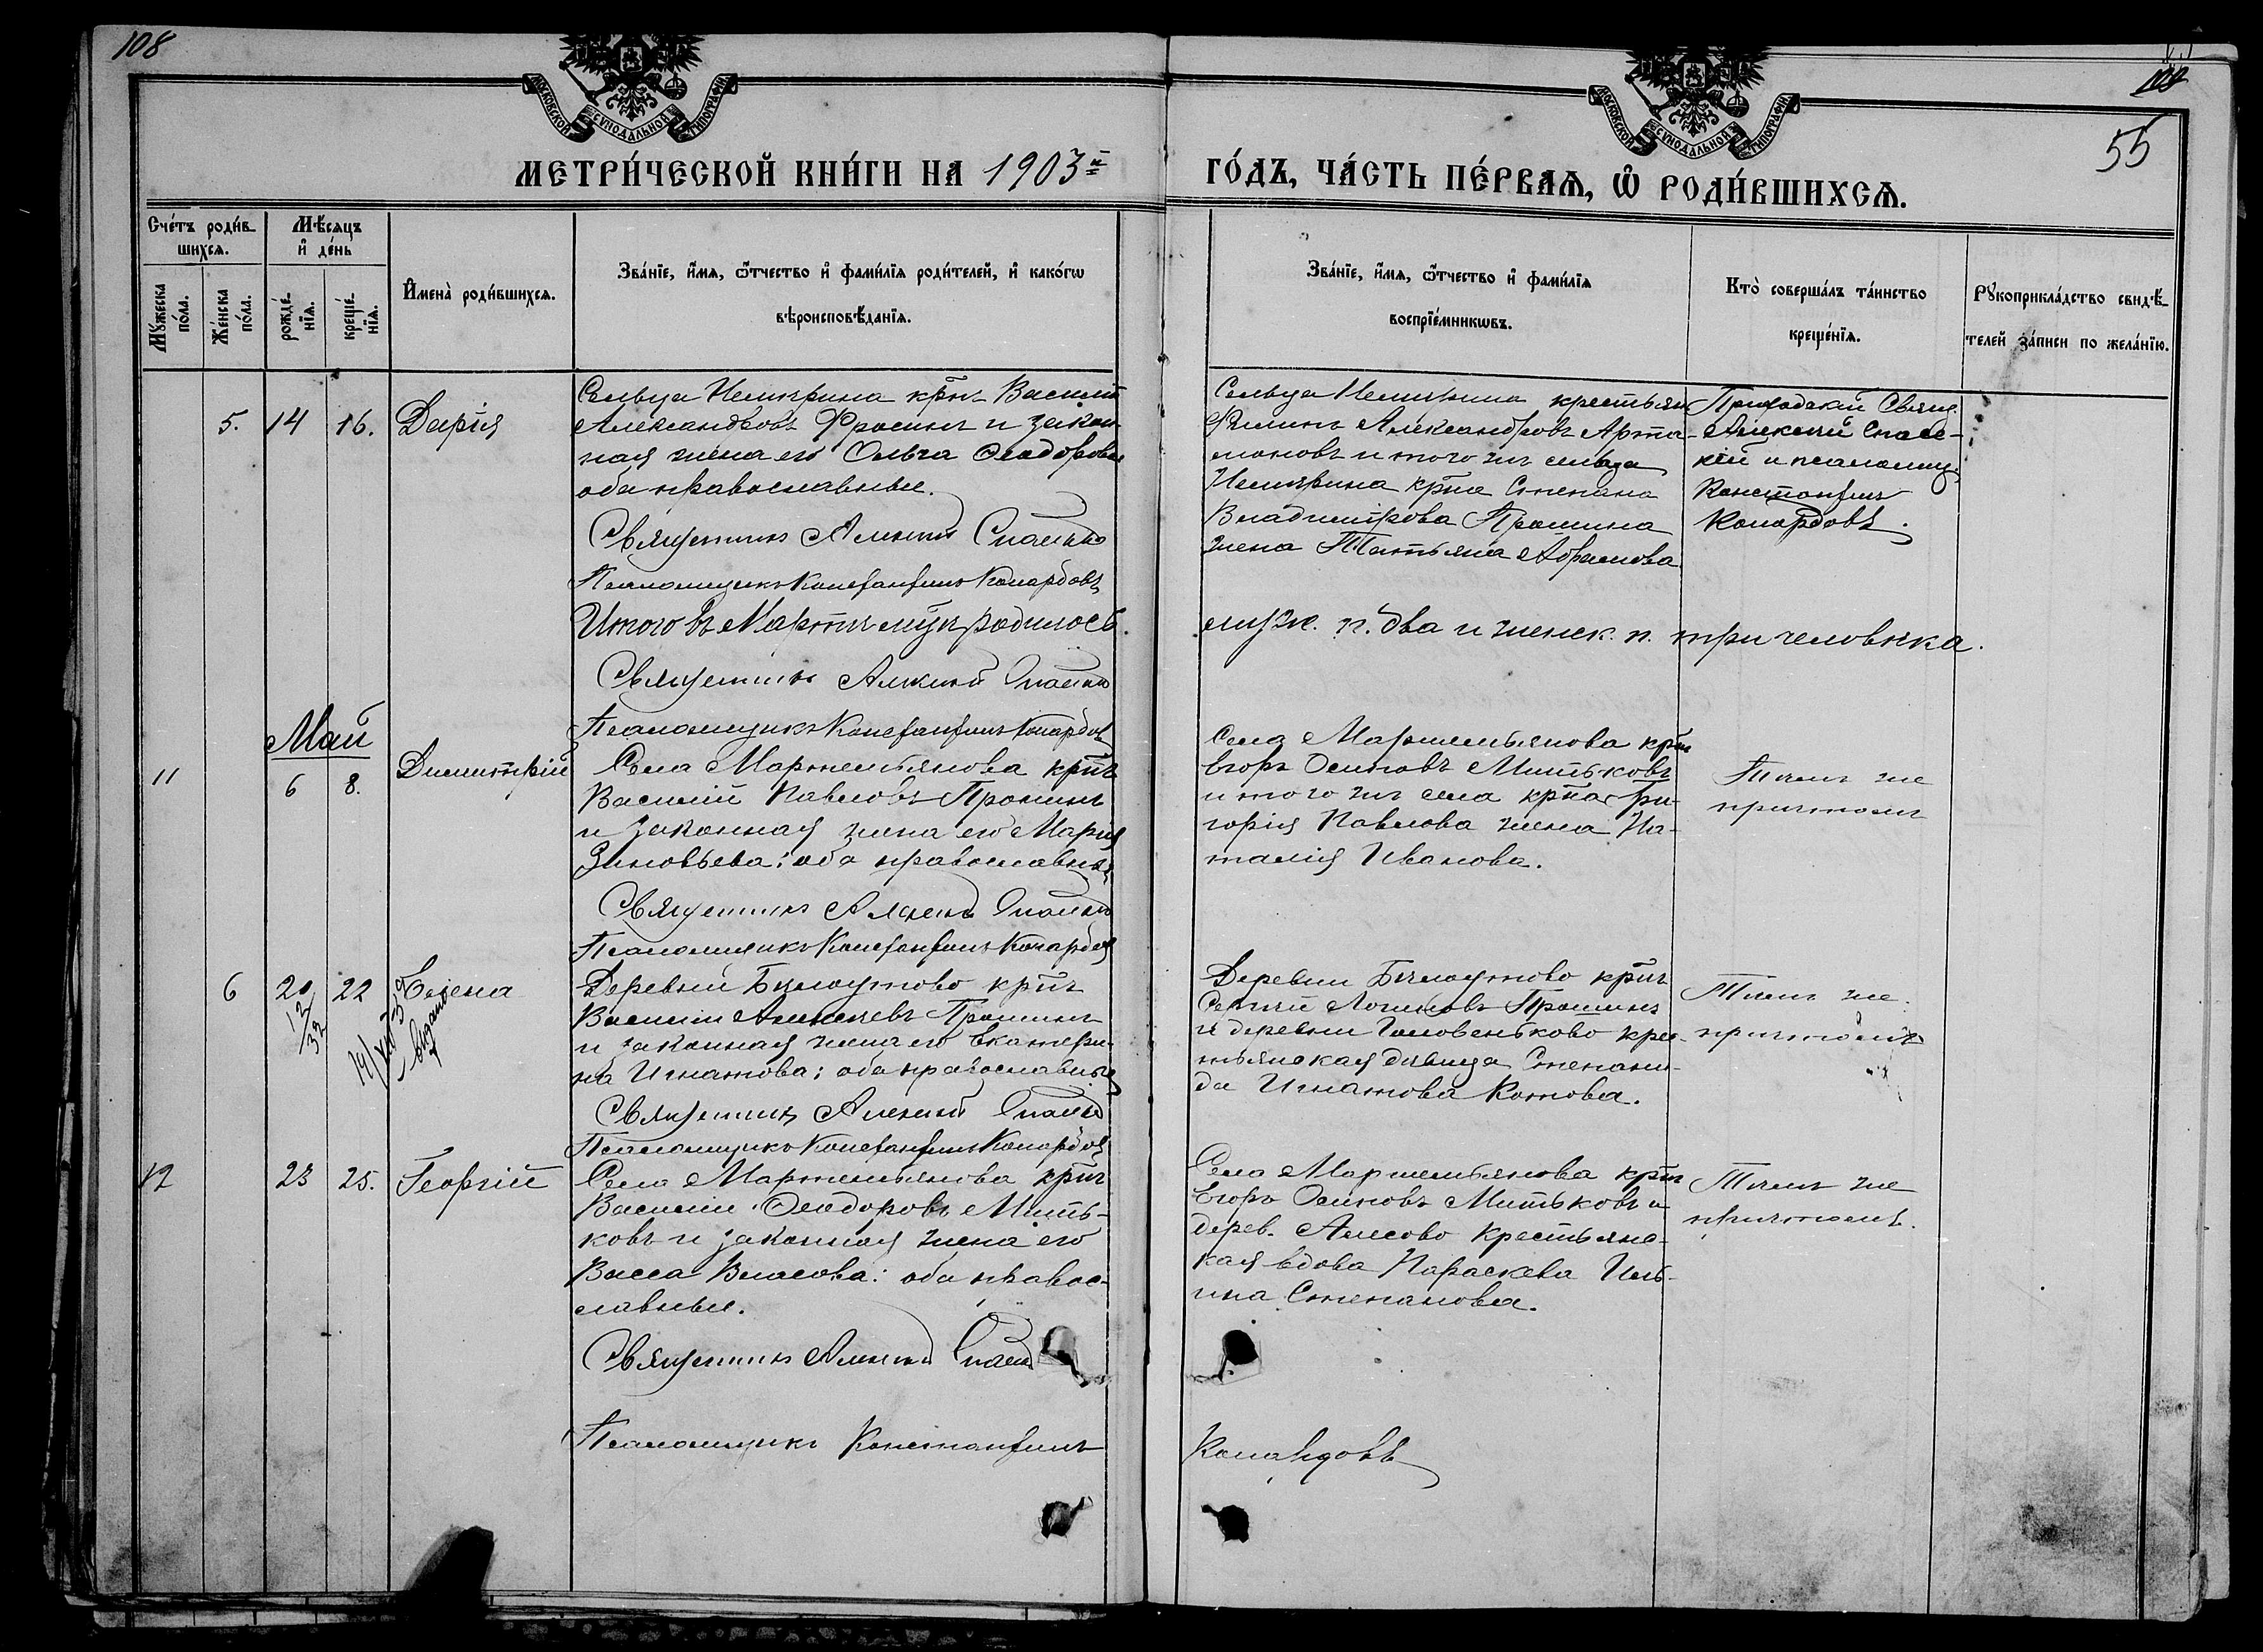 108
108
55
МОСКОВСКОЙ СѴНОДАЛЬНОЙ ТИПОГРАФІИ
МОСКОВСКОЙ СѴНОДАЛЬНОЙ ТИПОГРАФІИ
МЕТРИ́ЧЕСКОЙ КНИ́ГИ НА 1903й
ГО́ДЪ, ЧА́СТЬ ПЕ́РВАѦ, Ѡ҆ РОДИ́ВШИХСѦ.
Сче́тъ роди́в-
шихсѧ.
Мѣ́сѧцъ
и҆ де́нь
Мꙋ́жеска
по́ла.
Же́нска
по́ла.
рожде́-
нїѧ.
креще́-
нїѧ.
И҆мена̀ роди́вшихсѧ.
Зва́нїе, и҆́мѧ, ѻ҆́тчество и҆ фами́лїѧ роди́телей, и҆ како́гѡ
вѣроисповѣ́данїѧ.
Зва́нїе, и҆́мѧ, ѻ҆́тчество и҆ фами́лїѧ
воспрїе́мникѡвъ.
Кто̀ соверша́лъ та́инство
креще́нїѧ.
Рꙋкоприкла́дство свидѣ́-
телей за́писи по жела́нїю.
5. 14 16. Дарія
Сельца крнъ Василій
Александровъ Фросинъ и закон-
ная жена его Ольга Ѳеодорова
оба православные.
Священникъ Алексій Спасскій
Псаломщикъ Константинъ
Итого въ Мартѣ мцѣ родилось
Сельца крестьян
Филиппъ Александровъ Арта-
моновъ и того же сельца
крна Степана
Владимірова Прошина
жена Татьяна Абрамова
Приходскій Свящ.
Алексій Спасс-
кій и псаломщ.
Константинъ
муж. п. два и женск. п. три человѣка.
Священникъ Алексій Спасскій
Псаломщикъ Константинъ
Май
11 6 8. Димитрій
Села Мартемьянова крнъ
Василій Павловъ Пронинъ
и законная жена его Марія
Зиновьева; оба православные
Священникъ Алексій Спасскій
Псаломщикъ Константинъ
Села Мартемьянова крнъ
Егоръ Осиповъ Митьковъ
и того же села крна Гри-
горія Павлова жена На-
талія Иванова.
Тѣмъ же
причтомъ
6 20 22 Елена
12/32
выдано
Деревни крнъ
Василій Алексѣевъ Прошинъ
и законная жена его Екатери-
на Игнатова; оба православные
Священникъ Алексій Спасскій
Псаломщикъ Константинъ
Деревни крнъ
Сергій Логиновъ Прошинъ
и деревни Головеньково крес-
тьянская дѣвица Степани-
да Игнатова Котова.
Тѣмъ же
причтомъ
12 23 25. Георгій
Села Мартемьянова крнъ
Василій Ѳеодоровъ Мить-
ковъ и законная жена его
Васса Власова: оба правос-
славные.
Священникъ Алексій
Псаломщикъ Константинъ
Села Мартемьянова крнъ
Егоръ Осиповъ Митьковъ и
дерев. Алесово крестьянс-
кая вдова Параскева Иль-
ина Степанова.
Тѣмъ же
причтомъ.